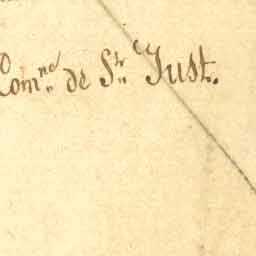 Com.ne de St. Just.